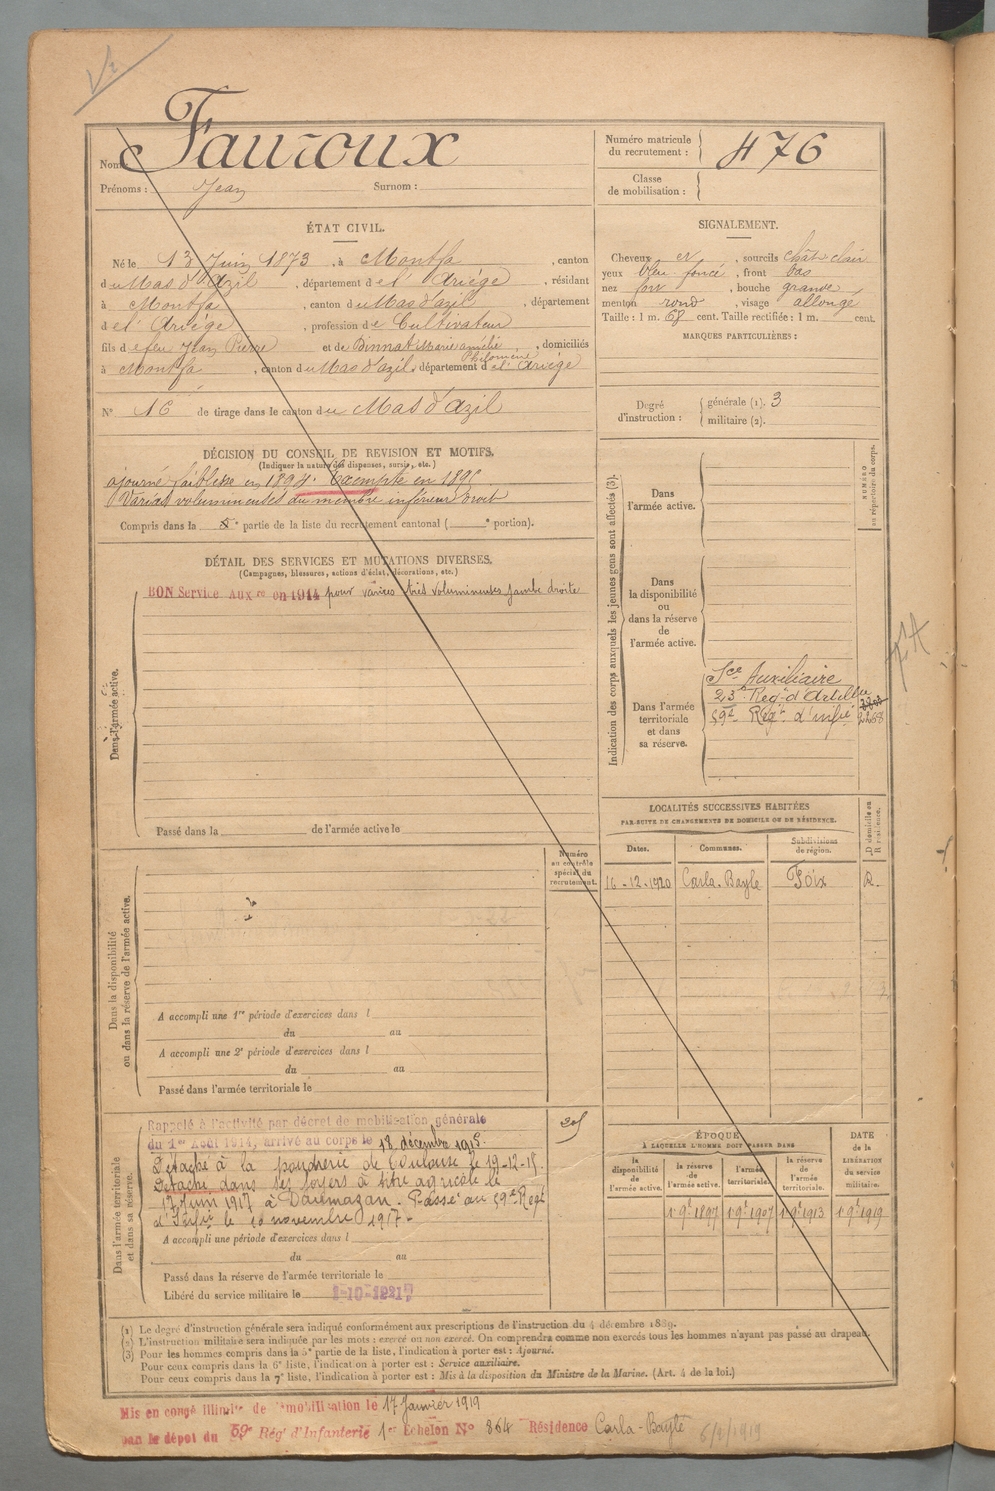 Fauroux
Nom :
Prénoms : Jean Surnom :
Numéro matricule
du recrutement : 476
Classe
de mobilisation :
ÉTAT CIVIL.
Né le 13 Juin 1873, à Montfa, canton
du Mas d'Azil, département de l'Ariège, résidant
à Montfa, canton du Mas d'azil, département
de l'Ariège, profession de Cultivateur
fils de feu Jean Pierre et de Binnat Marie amélie Philomène, domiciliés
à Montfa, canton du Mas d'azil, département de l'Ariège
N° 16 de tirage dans le canton du Mas d'Azil
SIGNALEMENT.
Cheveux et, sourcils chât. clair
yeux bleu foncé, front bas
nez fort, bouche grande
menton rond, visage allongé
Taille : 1 m. 68 cent. Taille rectifiée : 1 m. cent.
MARQUES PARTICULIÈRES :
Degré
d'instruction :
générale (1). 3
militaire (2).
DÉCISION DU CONSEIL DE REVISION ET MOTIFS.
(Indiquer la nature des dispenses, sursis, etc.)
ajourné faiblesse en 1894. Exempté en 1895
Varices volumineuses du membre inférieur droit
Compris dans la partie de la liste du recrutement cantonal ( e portion).
DÉTAIL DES SERVICES ET MUTATIONS DIVERSES.
(Campagnes, blessures, actions d'éclat, décorations, etc.)
Dans l'armée active.
BON Service Aux re en 1914 pour varices très volumineuses jambe droite
Passé dans la de l'armée active le
Indication des corps auxquels les jeunes gens sont affectés (3).
NUMÉRO
au répertoire du corps.
Dans
l'armée active.
Dans
la disponibilité
ou
dans la réserve
de
l'armée active.
Dans l'armée
territoriale
et dans
sa réserve.
Sce Auxiliaire
23e Regt d'Artillie
59e Régt d'infie 2268
LOCALITÉS SUCCESSIVES HABITÉES
PAR SUITE DE CHANGEMENTS DE DOMICILE OU DE RÉSIDENCE.
D domicile ou
R résidence.
Dates. Communes. Subdivisions
de région.
16-12-1920 Carla-Bayle Foix R.
Numéro
au contrôle
spécial du
recrutement.
Dans la disponibilité
ou dans la réserve de l'armée active.
A accompli une 1re période d'exercices dans l
du au
A accompli une 2e période d'exercices dans l
du au
Passé dans l'armée territoriale le
Dans l'armée territoriale
et dans sa réserve.
Rappelé à l'activité par décret de mobilisation générale
du 1er Août 1914, arrivé au corps le 18 décembre 1915.
Détaché à la poudrerie de Toulouse le 19-12-15.
Détaché dans ses foyers à titre agricole le
17 Juin 1917 à Daumazan. Passé au 59e Regt
d'Infie le 10 novembre 1917.
A accompli une période d'exercices dans l
du au
Passé dans la réserve de l'armée territoriale le
Libéré du service militaire le
ÉPOQUE
À LAQUELLE L'HOMME DOIT PASSER DANS
la
disponibilité
de
l'armée active.
la réserve
de
l'armée active.
l'armée
territoriale.
la réserve
de
l'armée
territoriale.
DATE
de la
LIBÉRATION
du service
militaire.
1 9e 1897 1 9e 1907 1 9e 1913 1 9e 1919
(1) Le degré d'instruction générale sera indiqué conformément aux prescriptions de l'instruction du 4 décembre 1889.
(2) L'instruction militaire sera indiquée par les mots : exercé ou non exercé. On comprendra comme non exercés tous les hommes n'ayant pas passé au drapeau.
(3) Pour les hommes compris dans la 5e partie de la liste, l'indication à porter est : Ajourné.
Pour ceux compris dans la 6e liste, l'indication à porter est : Service auxiliaire.
Pour ceux compris dans la 7e liste, l'indication à porter est : Mis à la disposition du Ministre de la Marine. (Art. 4 de la loi.)
Mis en congé illimité de démobilisation le 17 Janvier 1919
par le dépot du 59e Rég' d'Infanterie 1er Echelon N° 364 Résidence Carla-Bayle